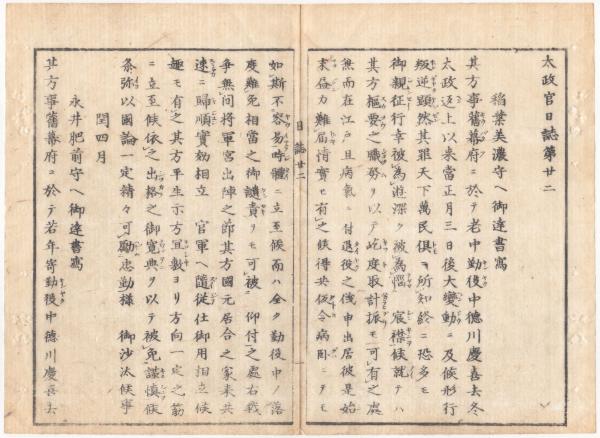 太政官日誌第廿二
稲葉美濃守ヘ御達書寫
其方事舊幕府ニ於テ老中勤役中徳川慶喜去冬
太政返上以来當正月三日後大變動ニ及候形行
叛逆顕然其罪天下萬民倶ニ所知終ニ恐多モ
御親征行幸被為遊深ク被為惱 宸襟候就テハ
其方樞要之職勞ヲ以テ屹度取計振モ可有之處
無而在江戸且病氣ニ付退役之儀申出居彼是始
末益力難届情實モ有之候得共仮令病閑ニテモ
日誌廿二
如斯不容易時體ニ立至候而ハ全ク勤役中ノ落
度難免相當之御譴責ヲモ可被 仰付之處右戦
争無間将軍宮出陣之節其方國元居合之家来共
速ニ歸順實効相立 官軍ヘ隨従仕御用相立候
趣モ有之其方平生示方宜敷ヨリ方向一定之筋
ニ立至候依之出格之御寛典ヲ以テ被免謹慎候
条弥以國論一定精々可勵忠勤様 御沙汰候事
閏四月
永井肥前守ヘ御達書寫
其方事舊幕府ニ於テ若年寄勤役中徳川慶喜去